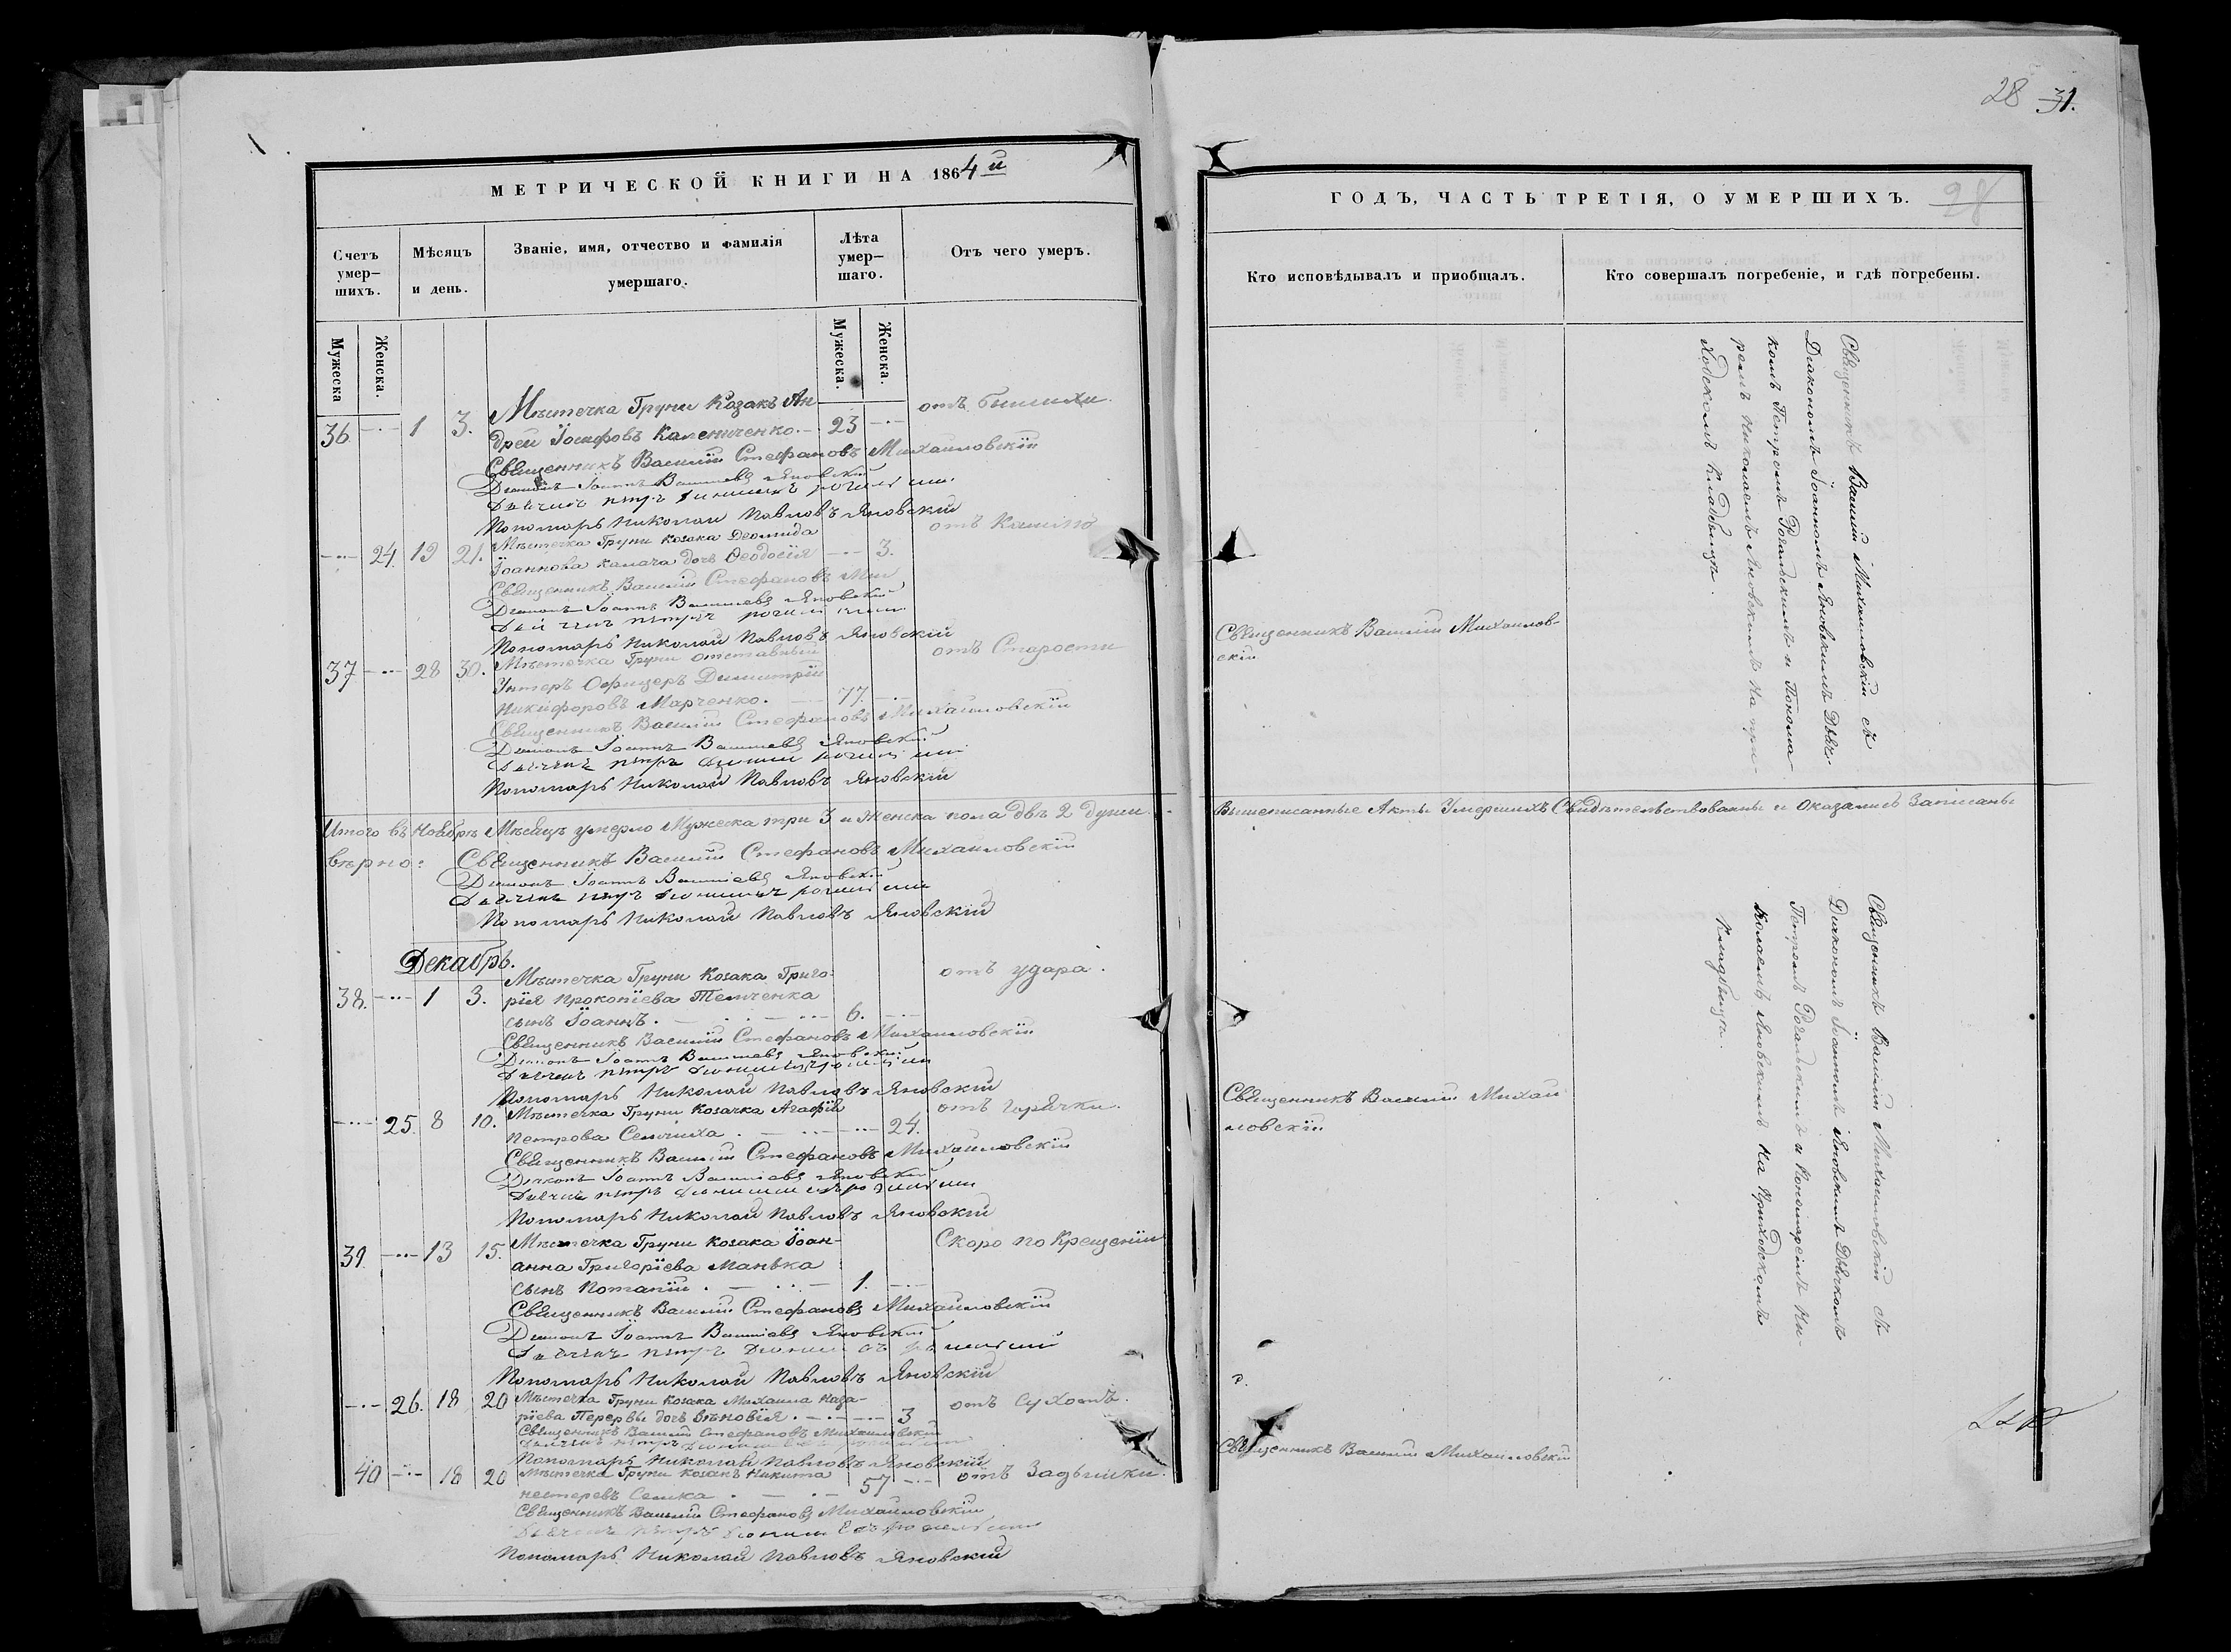 28 31.
МЕТРИЧЕСКОЙ КНИГИ НА 1864й
Счетъ умер-шихъ.
Мѣсяцъ и день.
Званіе, имя, отчество и фамилія умершаго.
Лѣта умер-шаго.
Отъ чего умеръ.
Мужеска
Женска.
Мужеска.
Женска.
36 1 3. Мѣстечка Груни Козакъ Ан 23 отъ
дрей Іосифовъ
Священникъ Василій Стефановъ Михайловскій
Діаконъ Іоаннъ Васильевъ Яновскій
Дьячекъ Петръ
Пономарь Николай Павловъ Яновскій
24. 19 21. Мѣстечка Груни козака Деомида отъ Кашлю
Іоаннова Калача дочь Ѳеодосія 3.
Священникъ Василій Стефановъ Мих
Діаконъ Іоаннъ Васильевъ Яновскій
Дьячекъ Петръ
Пономарь Николай Павловъ Яновскій
37 28 30. Мѣстечка Груни отставный отъ Старости
Унтеръ Офицеръ Димитрій
Никифоровъ Марченко. 77.
Священникъ Василій Стефановъ Михайловскій
Діаконъ Іоаннъ Васильевъ Яновскій
Дьячекъ Петръ
Пономарь Николай Павловъ Яновскій
Итого въ Ноябрѣ Мѣсяцѣ умерло Мужеска три 3 и Женска пола двѣ 2 души.
Вѣрно: Священникъ Василій Стефановъ Михайловскій
Діаконъ Іоаннъ Васильевъ Яновскій
Дьячекъ Петръ
Пономарь Николай Павловъ Яновскій
Декабрь.
38. 1 3. Мѣстечка Груни Козака Григо- отъ удара.
рія Прокопіева Темченка
сынъ Іоаннъ. 6.
Священникъ Василій Стефановъ Михайловскій
Діаконъ Іоаннъ Васильевъ Яновскій
Дьячекъ Петръ
Пономарь Николай Павловъ Яновскій
25. 8 10. Мѣстечка Груни Козачка Агафія отъ Горячки.
Петрова 24.
Священникъ Василій Стефановъ Михайловскій
Діаконъ Іоаннъ Васильевъ Яновскій
Дьячекъ Петръ
Пономарь Николай Павловъ Яновскій
39. 13 15. Мѣстечка Груни Козака Іоан- Скоро по Крещеніи
анна Григоріева Манька
сынъ Потапій. 1.
Священникъ Василій Стефановъ Михайловскій
Діаконъ Іоаннъ Васильевъ Яновскій
Дьячекъ Петръ
Пономарь Николай Павловъ Яновскій
26. 18 20 Мѣстечка Груни Козака Михаила Наза- отъ Сухотъ.
ріева Перервы дочь 3
Священникъ Василій Стефановъ Михайловскій
Дьячекъ Петръ
Пономарь Николай Павловъ Яновскій
40 18 20 Мѣстечка Груни Козакъ Никита 57 отъ Задышки.
Нестеревъ Семка
Священникъ Василій Стефановъ Михайловскій
Дьячекъ Петръ
Пономарь Николай Павловъ Яновскій
ГОДЪ, ЧАСТЬ ТРЕТІЯ, О УМЕРШИХЪ. 28
Кто исповѣдывалъ и приобщалъ.
Кто совершалъ погребеніе, и гдѣ погребены.
Священникъ Василій Михайловскій съ
Діакономъ Іоанномъ Яновскимъ Дьяч-
комъ Петромъ Рогальскимъ и Понома-
ремъ Николаемъ Яновскимъ на при-
ходскомъ кладбищѣ.
Священникъ Василій Михайлов-
скій
Вышеписанные Акты Умершихъ Свидѣтельствованы и Оказались Записаны
Священникъ Василій Михайловскій съ
Діакономъ Іоанномъ Яновскимъ Дьячкомъ
Петромъ Рогальскимъ и Пономаремъ Ни-
колаемъ Яновскимъ на приходскомъ
кладбищѣ.
Священникъ Василій Михай
ловскій
Священникъ Василій Михайловскій